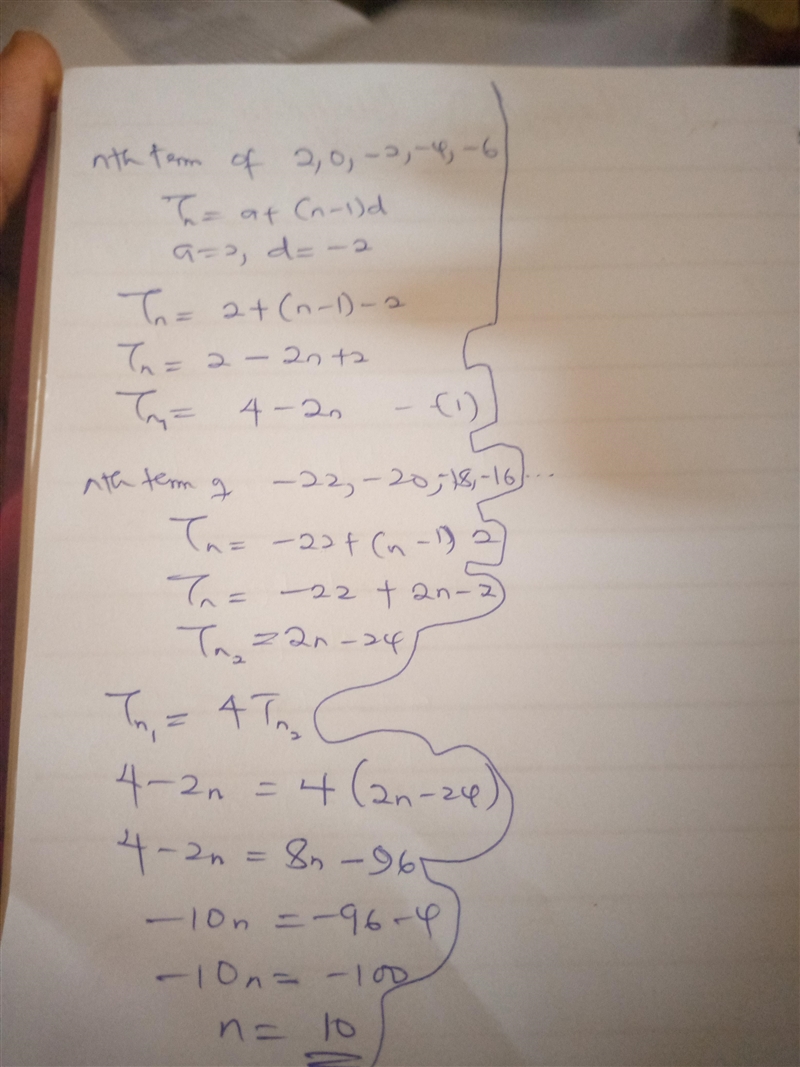 nth term of 2, 0, -2, -4, -6
Tn = a + (n-1)d
a=2, d= -2
Tn = 2+(n-1)-2
Tn = 2 - 2n+2
Tn1 = 4-2n - (1)
nth term of -22, -20, -18, -16...
Tn = -22+(n-1)2
Tn = -22 + 2n-2
Tn2 = 2n-24
Tn1 = 4Tn2
4-2n = 4(2n-24)
4-2n = 8n-96
-10n = -96-4
-10n = -100
n = 10